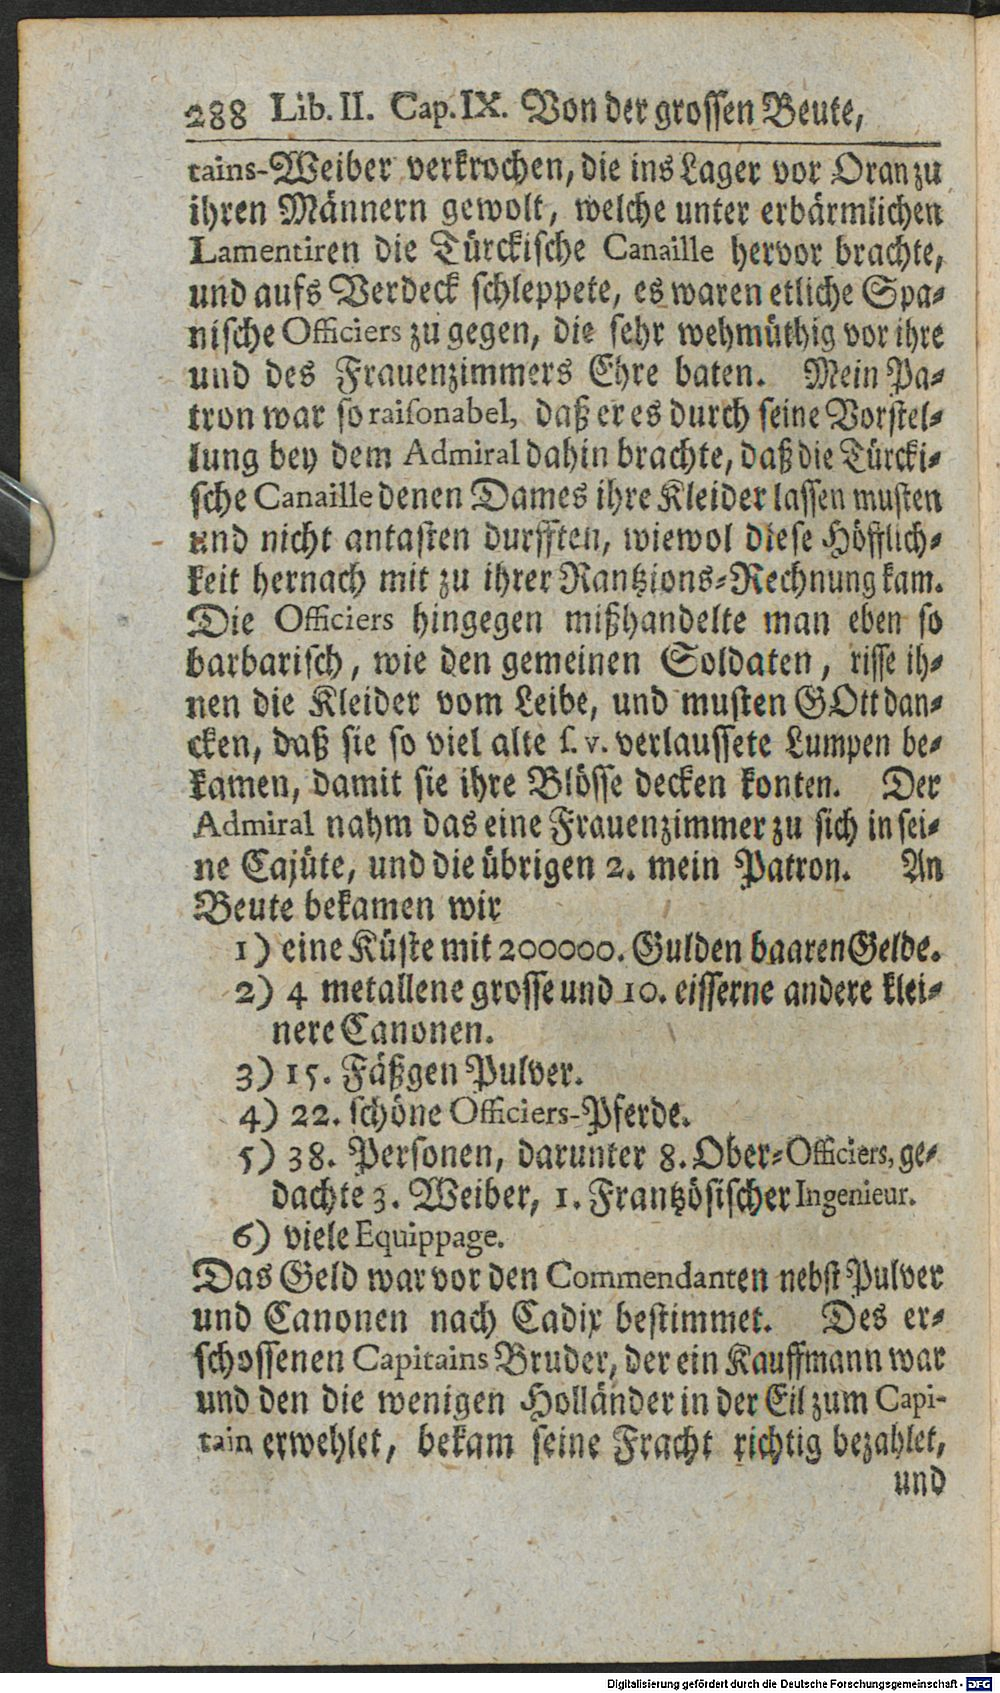 288 Lib. II. Cap. IX. Von der grossen Beute,
tains-Weiber verkrochen, die ins Lager vor Oran zu
ihren Männern gewolt, welche unter erbärmlichen
Lamentiren die Türckische Canaille hervor brachte,
und aufs Verdeck schleppete, es waren etliche Spa-
nische Officiers zu gegen, die sehr wehmüthig vor ihre
und des Frauenzimmers Ehre baten. Mein Pa-
tron war so raisonabel, daß er es durch seine Vorstel-
lung bey dem Admiral dahin brachte, daß die Türcki-
sche Canaille denen Dames ihre Kleider lassen musten
und nicht antasten durfften, wiewol diese Höfflich-
keit hernach mit zu ihrer Rantzions-Rechnung kam.
Die Officiers hingegen mißhandelte man eben so
barbarisch, wie den gemeinen Soldaten, risse ih-
nen die Kleider vom Leibe, und musten GOtt dan-
cken, daß sie so viel alte s. v. verlaussete Lumpen be-
kamen, damit sie ihre Blösse decken konten. Der
Admiral nahm das eine Frauenzimmer zu sich in sei-
ne Cajüte, und die übrigen 2. mein Patron. An
Beute bekamen wir
1) eine Küste mit 200000. Gulden baaren Gelde.
2) 4 metallene grosse und 10. eisserne andere klei-
nere Canonen.
3) 15. Fäßgen Pulver.
4) 22. schöne Officiers-Pferde.
5) 38. Personen, darunter 8. Ober-Officiers, ge-
dachte 3. Weiber, 1. Frantzösischer Ingenieur.
6) viele Equippage.
Das Geld war vor den Commendanten nebst Pulver
und Canonen nach Cadix bestimmet. Des er-
schossenen Capitains Bruder, der ein Kauffmann war
und den die wenigen Holländer in der Eil zum Capi-
tain erwehlet, bekam seine Fracht richtig bezahlet,
und
Digitalisierung gefördert durch die Deutsche Forschungsgemeinschaft - DFG